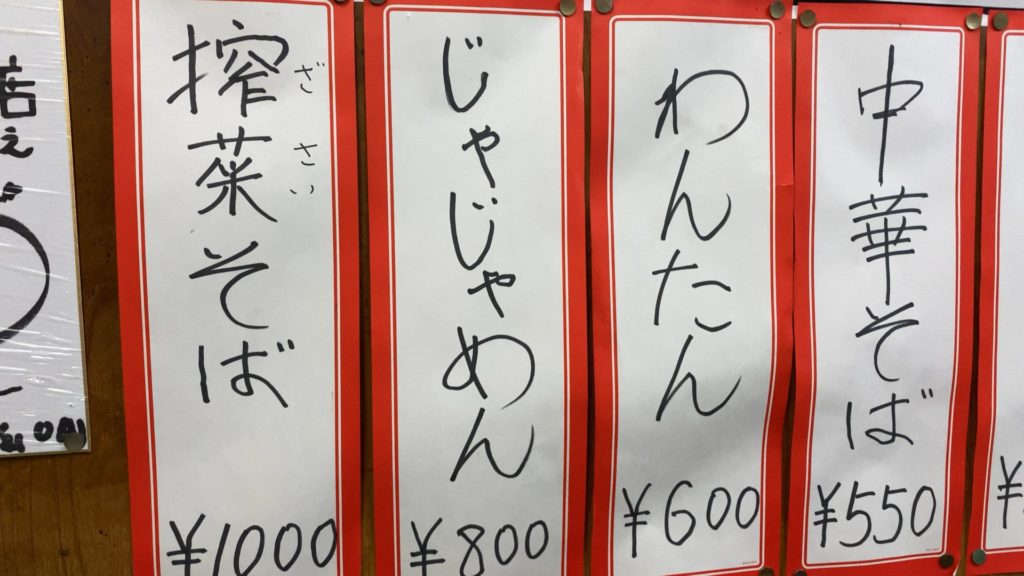 中華そば
¥550
わんたん
¥600
じゃじゃめん
¥800
搾菜そば
ざさい
¥1000